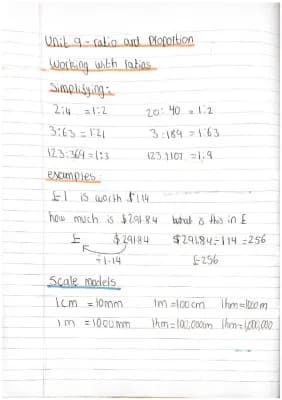 Unit 9 - ratio and Proportion
Working with ratios
Simplifying:
2:4 = 1:2 20:40 = 1:2
3:63 = 1:21 3:189 = 1:63
123:369 = 1:3 123:1107 = 1:9
examples
£1 is worth $1.14
how much is $291.84 what is this in £
£ $291.84 $291.84÷1.14 = 256
÷1.14 £256
Scale models
1cm = 10mm 1m = 100cm 1km = 1000m
1m = 1000mm 1km = 100,000cm 1km = 1,000,000